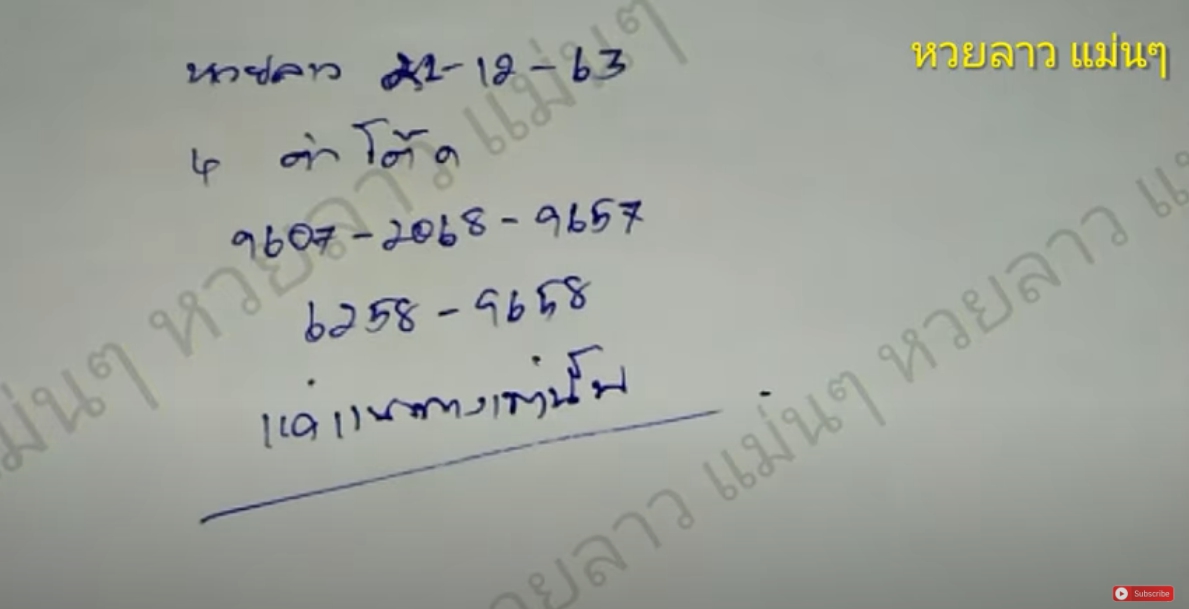 หวยลาว แม่นๆ
หวยลาว 21-12-63
4 ตัว โต๊ด
9607-2068-9657
6258-9658
แค่แนวทางเท่านั้น
หวยลาว แม่นๆ
หวยลาว แม่นๆ
หวยลาว แม่นๆ
Subscribe